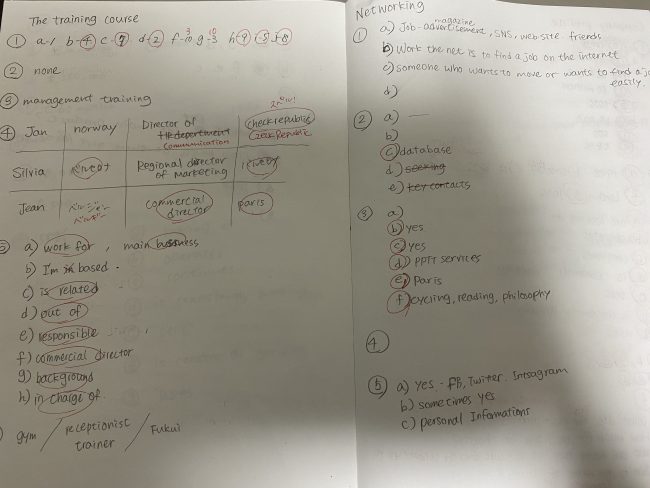 The training course
① a-1 b-4 c-7 d-2 f-3 g-10 h-9 i-5 j-8
② none
③ management training
④ Jan norway Director of HR department communication check republic Czek Republic
Silvia Regional director of Marketing
Jean ベルギー commercial director paris
⑤ a) work for, main business
b) I'm in based.
c) is related
d) out of
e) responsible
f) commercial director
g) background
h) in charge of.
gym / receptionist trainer / Fukui
Networking
① a) Job-advertisement, magazine, SNS, web site. friends
b) Work the net is to find a job on the internet
c) someone who wants to move or wants to find a jo
easily.
d)
② a) —
b)
c) database
d) seeking
e) key contacts
③ a)
b) yes
c) yes
d) PPTT services
e) Paris
f) cycling, reading, philosophy
④
⑤ a) Yes - FB, Twitter. Intsagram
b) sometimes yes
c) personal Informations